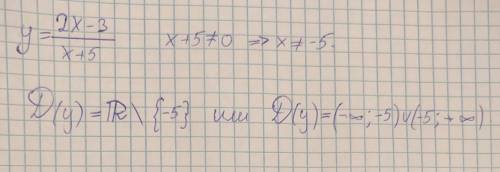 y = \frac{2x-3}{x+5} x+5≠0 ⇒ x≠-5.
D(y) = ℝ \ {-5} или D(y)=(-∞;-5)∪(-5;+∞)